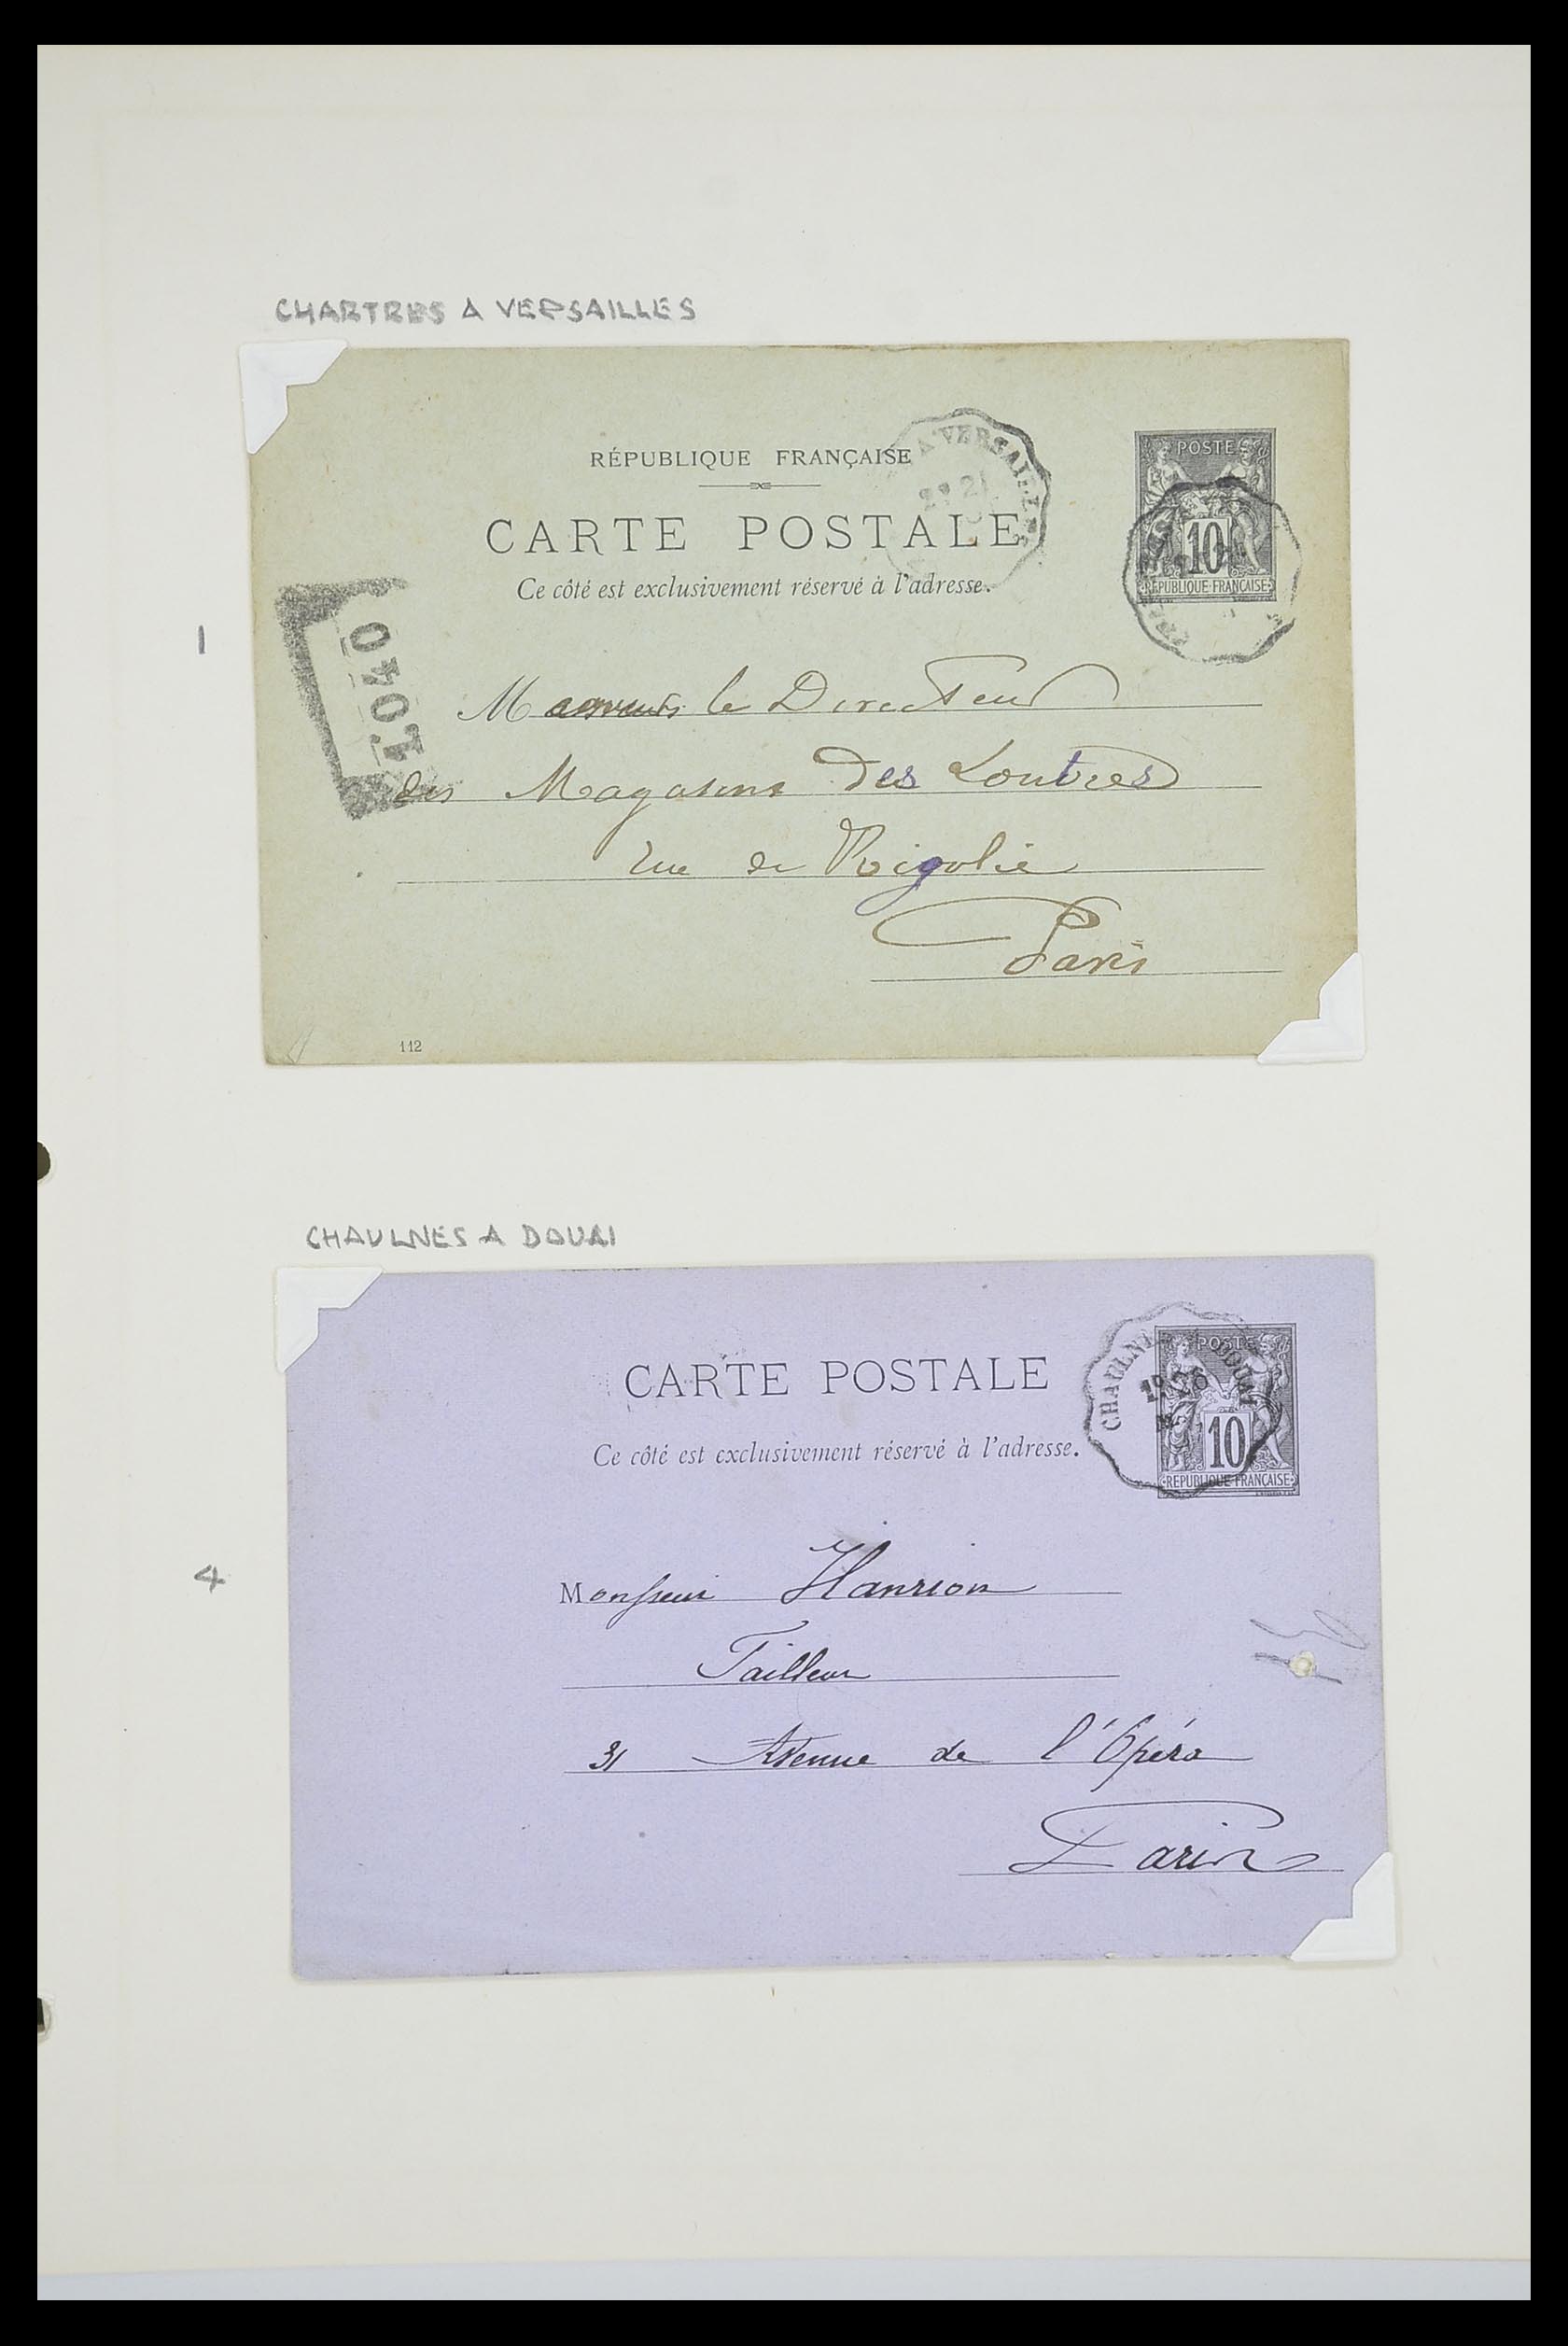 CHARTRES A VERSAILLES
RÉPUBLIQUE FRANÇAISE
A VERSAILLES
CARTE POSTALE
Ce côté est exclusivement réservé à l'adresse.
POSTE
10
RÉPUBLIQUE FRANÇAISE
1
M le Directeur
des Magasins des Loutres
rue de Rigolie
Paris
112
CHAULNES A DOUAI
CARTE POSTALE
Ce côté est exclusivement réservé à l'adresse.
CHAULNE DOUAI
26
POSTE
10
RÉPUBLIQUE FRANÇAISE
4
Monsieur Hanrion
Tailleur
31 Avenue de l'Opéra
Paris